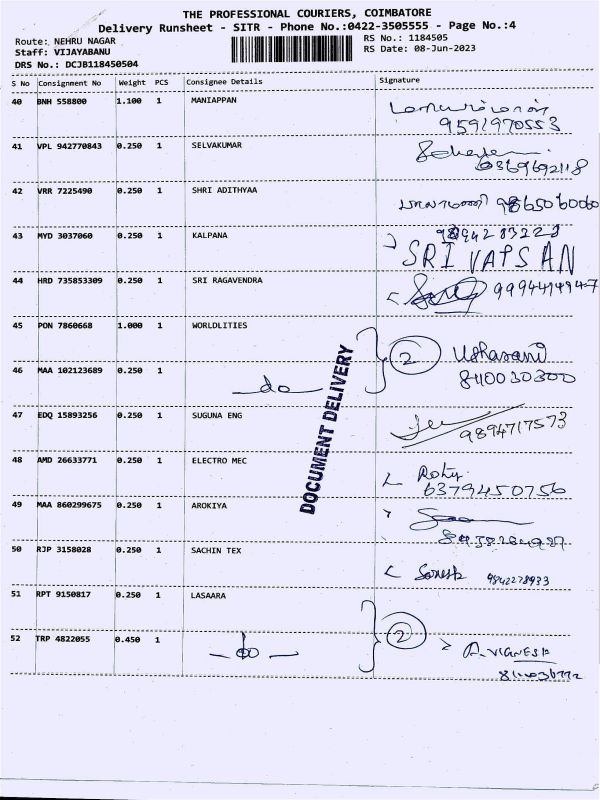 THE PROFESSIONAL COURIERS, COIMBATORE
Delivery Runsheet - SITR - Phone No.:0422-3505555 - Page No.:4
Route: NEHRU NAGAR
RS No.: 1184505
Staff: VIJAYABANU
RS Date: 08-Jun-2023
DRS No.: DCJB118450504
S No Consignment No Weight PCS Consignee Details Signature
40 BNH 558800 1.100 1 MANIAPPAN
9591970553
41 VPL 942770843 0.250 1 SELVAKUMAR
42 VRR 7225490 0.250 1 SHRI ADITHYAA
9865060060
43 MYD 3037060 0.250 1 KALPANA
SRIVATSAN
44 HRD 735853309 0.250 1 SRI RAGAVENDRA
45 PON 7860668 1.000 1 WORLDLITIES
2 Usharani
46 MAA 102123689 0.250 1 do
DOCUMENT DELIVERY
47 EDQ 15893256 0.250 1 SUGUNA ENG
9894717573
48 AMD 26633771 0.250 1 ELECTRO MEC
6379450756
49 MAA 860299675 0.250 1 AROKIYA
50 RJP 3158028 0.250 1 SACHIN TEX
9842278933
51 RPT 9150817 0.250 1 LASAARA
2
52 TRP 4822055 0.450 1 do
A.VIGNESH